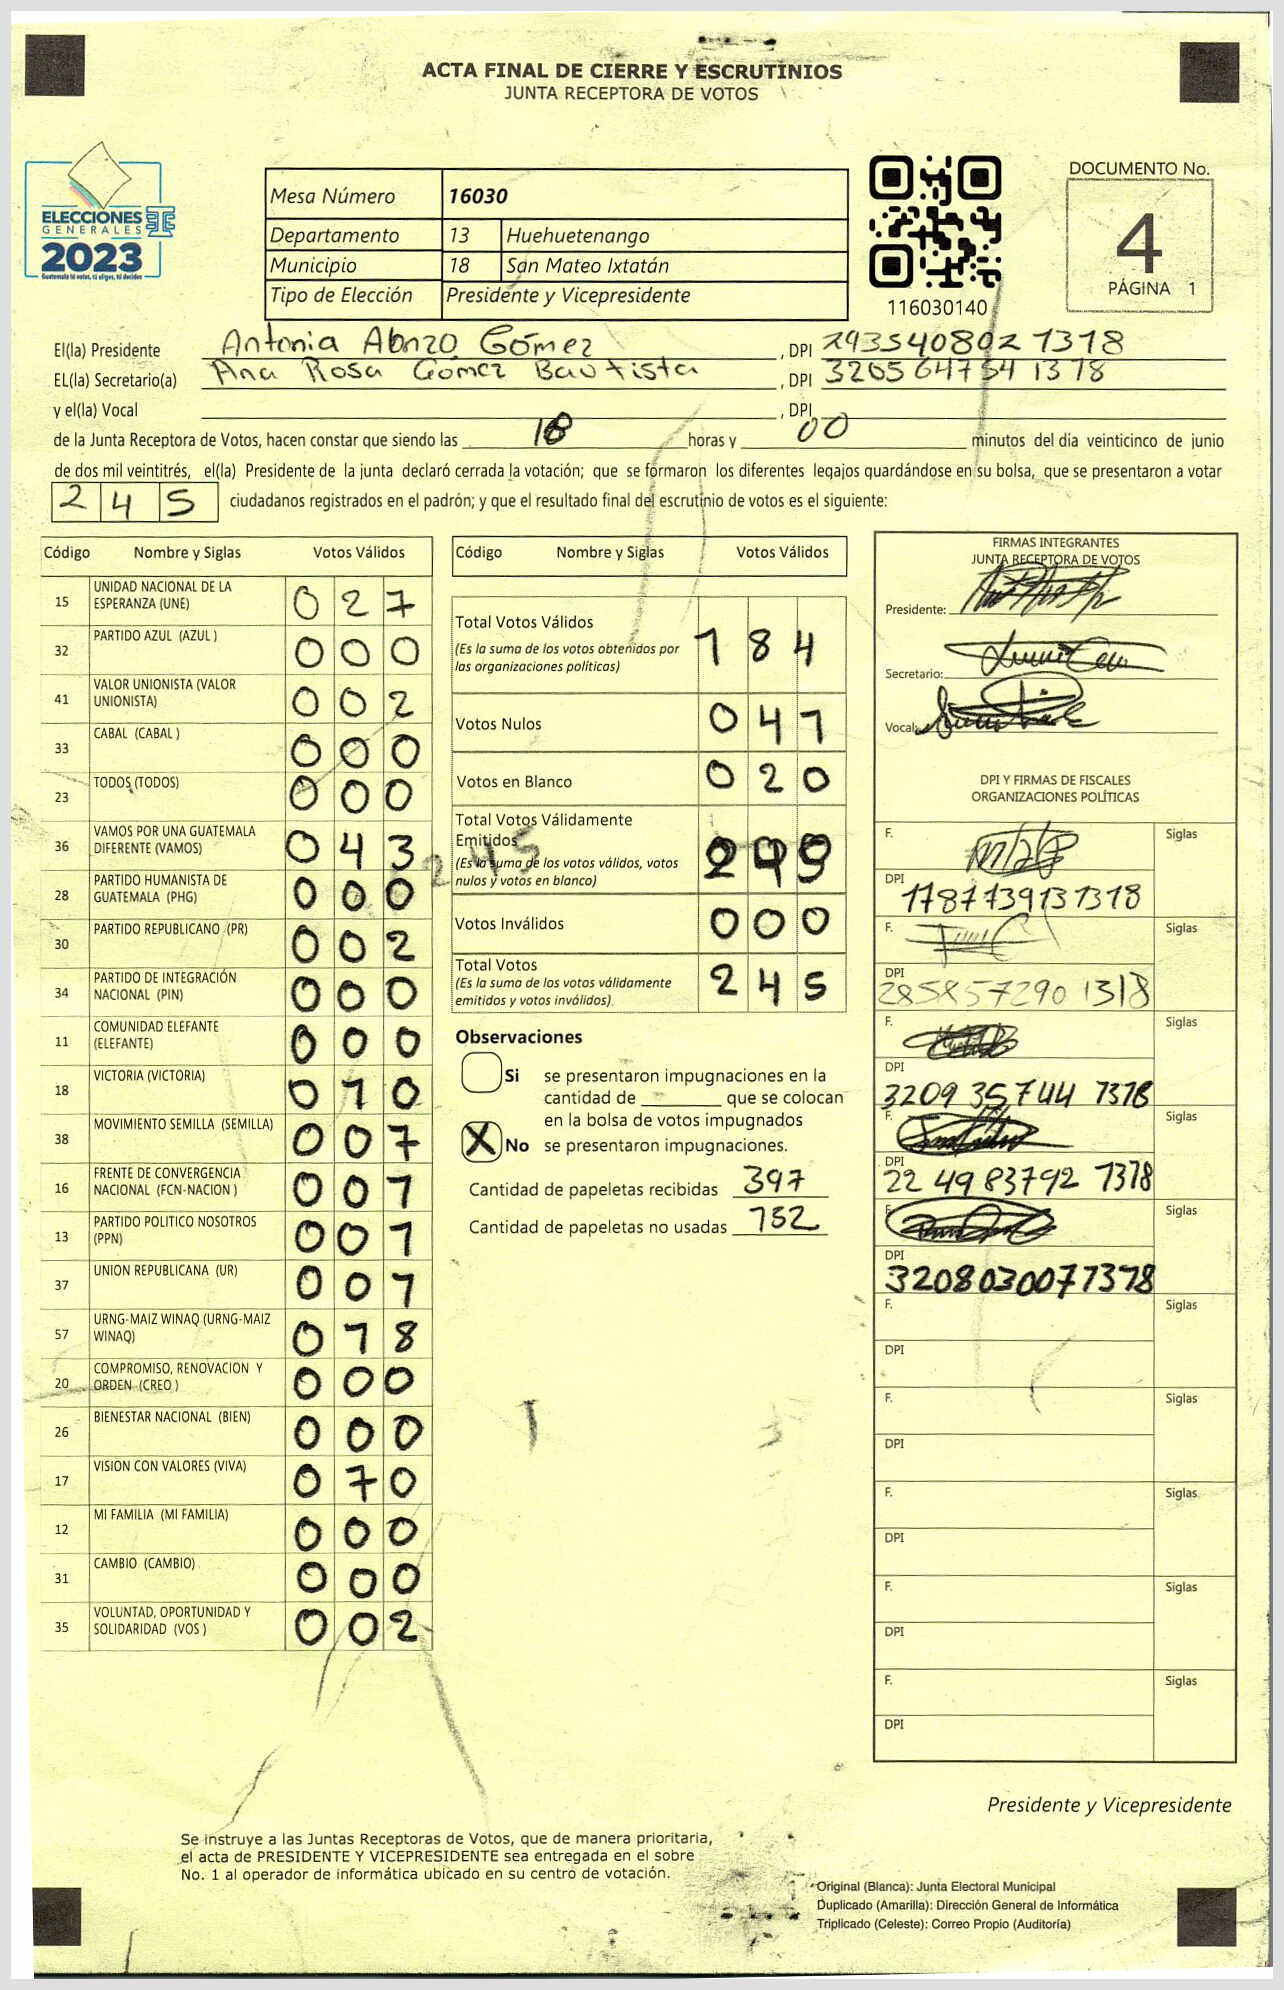 ACTA FINAL DE CIERRE Y ESCRUTINIOS
JUNTA RECEPTORA DE VOTOS
ELECCIONES
GENERALES
2023
Guatemala te votas, tú eliges, tú decides
Mesa Número 16030
Departamento 13 Huehuetenango
Municipio 18 San Mateo Ixtatán
Tipo de Elección Presidente y Vicepresidente
116030140
DOCUMENTO No.
4
PÁGINA 1
El(la) Presidente Antonia Alonzo Gómez , DPI 2935408021318
EL(la) Secretario(a) Ana Rosa Gómez Bautista , DPI 3205647541318
y el(la) Vocal , DPI
de la Junta Receptora de Votos, hacen constar que siendo las 18 horas y 00 minutos del día veinticinco de junio
de dos mil veintitrés, el(la) Presidente de la junta declaró cerrada la votación; que se formaron los diferentes legajos guardándose en su bolsa, que se presentaron a votar
245 ciudadanos registrados en el padrón; y que el resultado final del escrutinio de votos es el siguiente:
Código Nombre y Siglas Votos Válidos
15 UNIDAD NACIONAL DE LA ESPERANZA (UNE) 027
32 PARTIDO AZUL (AZUL ) 000
41 VALOR UNIONISTA (VALOR UNIONISTA) 002
33 CABAL (CABAL ) 000
23 TODOS (TODOS) 000
36 VAMOS POR UNA GUATEMALA DIFERENTE (VAMOS) 043
28 PARTIDO HUMANISTA DE GUATEMALA (PHG) 000
30 PARTIDO REPUBLICANO (PR) 002
34 PARTIDO DE INTEGRACIÓN NACIONAL (PIN) 000
11 COMUNIDAD ELEFANTE (ELEFANTE) 000
18 VICTORIA (VICTORIA) 010
38 MOVIMIENTO SEMILLA (SEMILLA) 007
16 FRENTE DE CONVERGENCIA NACIONAL (FCN-NACION ) 001
13 PARTIDO POLITICO NOSOTROS (PPN) 001
37 UNION REPUBLICANA (UR) 001
57 URNG-MAIZ WINAQ (URNG-MAIZ WINAQ) 078
20 COMPROMISO, RENOVACION Y ORDEN (CREO ) 000
26 BIENESTAR NACIONAL (BIEN) 000
17 VISION CON VALORES (VIVA) 010
12 MI FAMILIA (MI FAMILIA) 000
31 CAMBIO (CAMBIO) 000
35 VOLUNTAD, OPORTUNIDAD Y SOLIDARIDAD (VOS ) 002
Código Nombre y Siglas Votos Válidos
Total Votos Válidos 184
(Es la suma de los votos obtenidos por
las organizaciones políticas)
Votos Nulos 041
Votos en Blanco 020
Total Votos Válidamente
Emitidos 245
(Es la suma de los votos válidos, votos
nulos y votos en blanco)
245
Votos Inválidos 000
Total Votos 245
(Es la suma de los votos válidamente
emitidos y votos inválidos)
Observaciones
Si se presentaron impugnaciones en la
cantidad de ________ que se colocan
en la bolsa de votos impugnados
X No se presentaron impugnaciones.
Cantidad de papeletas recibidas 397
Cantidad de papeletas no usadas 152
FIRMAS INTEGRANTES
JUNTA RECEPTORA DE VOTOS
Presidente:
Secretario:
Vocal:
DPI Y FIRMAS DE FISCALES
ORGANIZACIONES POLÍTICAS
F. Siglas
DPI 1787739131318
F. Siglas
DPI 2858572901318
F. Siglas
DPI 3209357441318
F. Siglas
DPI 2249837921318
F. Siglas
DPI 3208030071318
F. Siglas
DPI
F. Siglas
DPI
F. Siglas
DPI
F. Siglas
DPI
F. Siglas
DPI
Presidente y Vicepresidente
Se instruye a las Juntas Receptoras de Votos, que de manera prioritaria,
el acta de PRESIDENTE Y VICEPRESIDENTE sea entregada en el sobre
No. 1 al operador de informática ubicado en su centro de votación.
Original (Blanca): Junta Electoral Municipal
Duplicado (Amarilla): Dirección General de Informática
Triplicado (Celeste): Correo Propio (Auditoría)